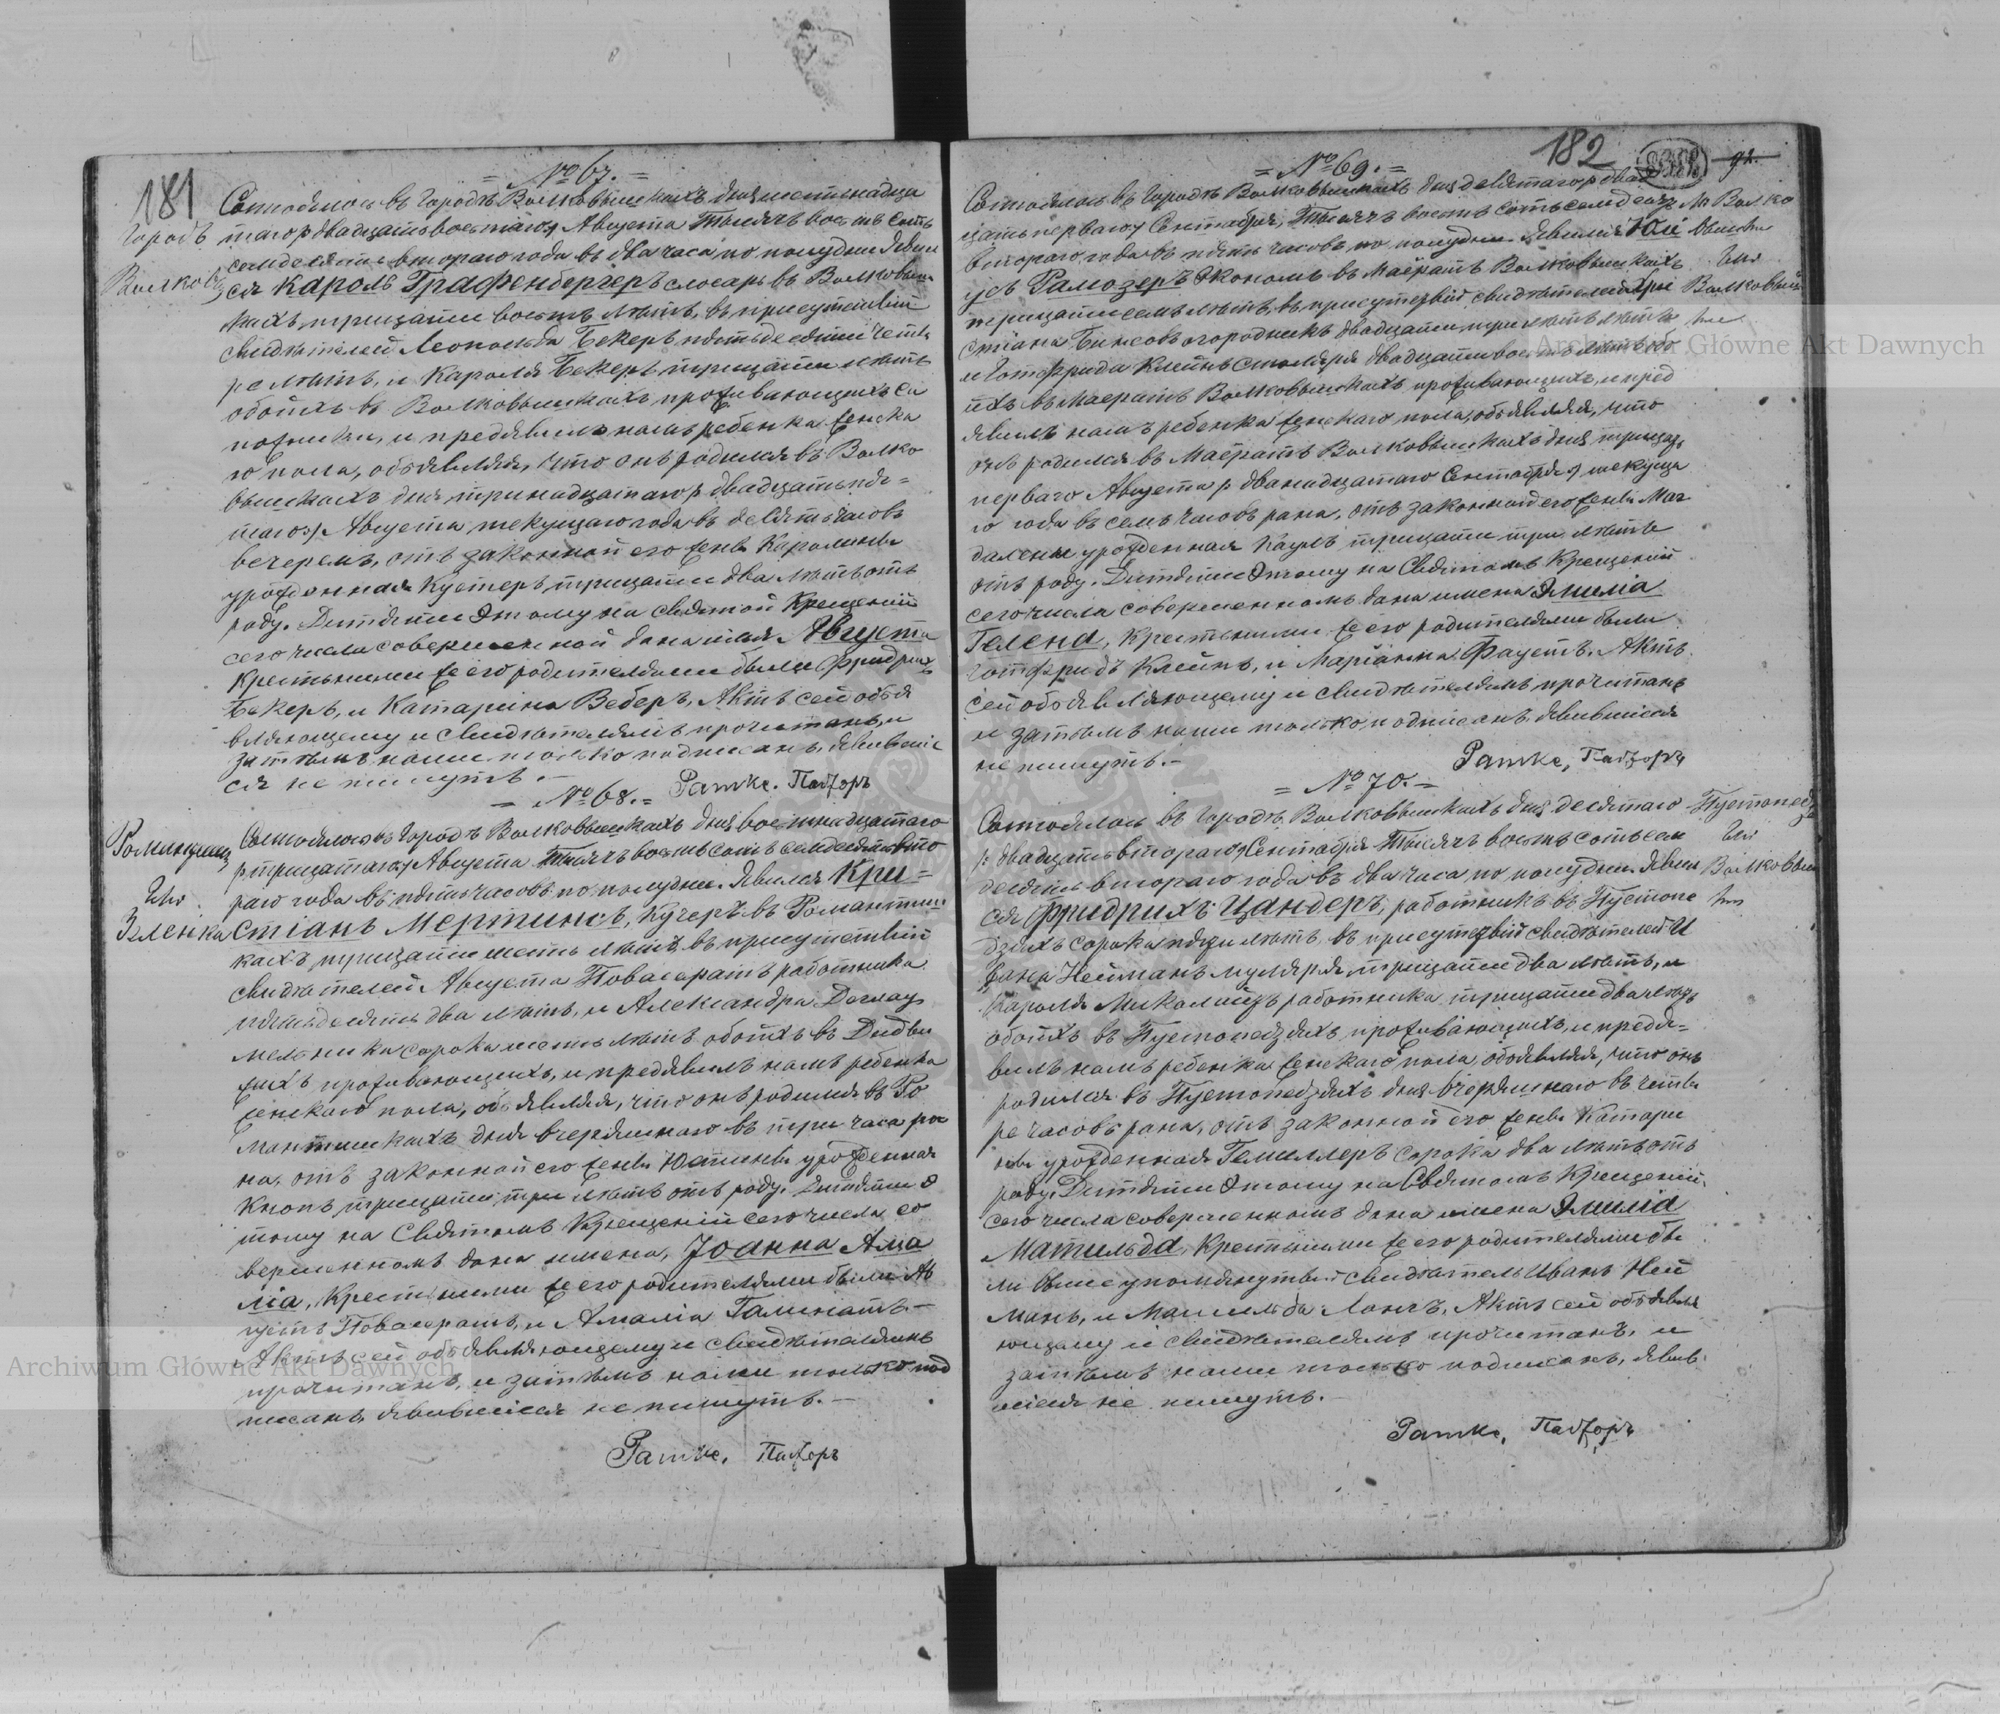 181
=№ 67.=
Городъ
Волков
Состоялось въ Городѣ Волковышкахъ дня шестнадца
таго/двадцать восьмаго/ Августа Тысяча восемь сотъ
семьдесятъ втораго года въ два часа по полудни. Явил
ся Кароль Графенбергеръ слосарь въ Волковыш
кахъ, тридцати восемь лѣтъ, въ присутствіи
свидѣтелей Леопольда Бекеръ пятьдесяти четы
ре лѣтъ, и Кароля Бекеръ тридцати лѣтъ
обоихъ въ Волковышкахъ проживающихъ са
пожники, и предъявилъ намъ ребенка женска
го пола, объявляя, что онъ родился въ Волко
вышкахъ дня тринадцатаго/двадцать пя=
таго/ Августа текущаго года въ десять часовъ
вечеромъ, отъ законной его жены Каролины
урожденная Кустеръ тридцати два лѣтъ отъ
роду. Дитяти этому на святой Крещеніи
сего числа совершенной дана имя Августа
Крестными же его родителями были Фридрих
Бекеръ, и Катарина Веберъ, Актъ сей объя
вляющему и свидѣтелямъ прочитанъ, и
затѣмъ нами только подписанъ, явившіе
ся не пишутъ.—
Ратке. Пасторъ
=№ 68.=
Зеленка
Состоялось въ Городѣ Волковышкахъ дня восемнадцатаго
/тридцатаго/ Августа Тысяча восемь сотъ семьдесятъ вто
раго года въ пять часовъ по полудни. Явился Кри=
стіанъ Мертинсъ, Кучеръ въ Романтиш
кахъ тридцати шесть лѣтъ, въ присутствіи
свидѣтелей Августа Повасератъ работника
пятьдесятъ два лѣтъ, и Александра
мельника сорока шесть лѣтъ обоихъ въ Дидви
жихъ проживающихъ, и предъявилъ намъ ребенка
женскаго пола, объявляя, что онъ родился въ Ро
мантишкахъ дня вчерашнаго въ три часа ра
на, отъ законной его жены Юстины урожденная
Кнопъ тридцати три лѣтъ отъ роду. Дитяти э
тому на Святомъ Крещеніи сего числа со
вершенномъ дана имена, Іоанна Ама
лія, Крестными же его родителями были Ав
густъ Повасератъ, и Амалія Галинатъ.—
Актъ сей объявляющему и свидѣтелямъ
прочитанъ, и затѣмъ нами только под
писанъ, явившіеся не пишутъ.—
Ратке, Пасторъ
182
92.
=№ 69.=
М. Волко
вышки
Волковыш
Состоялось въ Городѣ Волковышкахъ дня девятаго/два
дцать перваго/ Сентября, Тысяча восемь сотъ семьдесятъ
втораго года въ пять часовъ по полудни. Явился Юлі
усъ Рамозеръ Экономъ въ Маёратѣ Волковышкахъ
тридцати семь лѣтъ, въ присутствіи свидѣтелей Кри
стіана Бинсовъ огородникъ двадцати три лѣтъ
и Готфрида Клейнъ столяря двадцати восемь лѣтъ обо
ихъ въ Маёратѣ Волковышкахъ проживающихъ, и пред
явилъ намъ ребенка женскаго пола, объявляя, что
онъ родился въ Маёратѣ Волковышкахъ дня тридцать
перваго Августа/двѣнадцатаго Сентября/ текуща
го года въ семь часовъ рана, отъ законной его жены Маг
далены урожденная Каулъ тридцати три лѣтъ
отъ роду. Дитяти этому на Святомъ Крещеніи
сего числа совершенномъ дана имена Эмилія
Гелена, Крестными же его родителями были
Готфридъ Клейнъ, и Маріанна Фаустъ. Актъ
сей объявляющему и свидѣтелямъ прочитанъ
и затѣмъ нами только подписанъ, явившіеся
не пишутъ.—
Ратке, Пасторъ
=№ 70.=
Пустопедз
Волковыш
Состоялось въ Городѣ Волковышкахъ дня десятаго
/двадцать втораго/ Сентября Тысяча восемь сотъ сем
десятъ втораго года въ два часа по полудни. Явил
ся Фридрихъ Цандеръ, работникъ въ Пустопе
дзяхъ сорока пяти лѣтъ, въ присутствіи свидѣтелей И
вана Нейманъ муляря, тридцати два лѣтъ, и
Кароля работника тридцати два лѣтъ
обоихъ въ Пустопедзяхъ проживающихъ, и предъя=
вилъ намъ ребенка женскаго пола, объявляя, что онъ
родился въ Пустопедзяхъ дня вчерашнаго въ четы
ре часовъ рана, отъ законной его жены Катари
ны урожденная Гешиллеръ сорока два лѣтъ отъ
роду. Дитяти этому на Святомъ Крещеніи
сего числа совершенномъ дана имена Эмилія
Матильда, Крестными же его родителями бы
ли вышеупомянутый свидѣтель Иванъ Ней
манъ, и Матильда Лангъ, Актъ сей объявля
ющему и свидѣтелямъ прочитанъ, и
затѣмъ нами только подписанъ, явив
шіеся не пишутъ.—
Ратке, Пасторъ
Archiwum Główne Akt Dawnych
Archiwum Główne Akt Dawnych